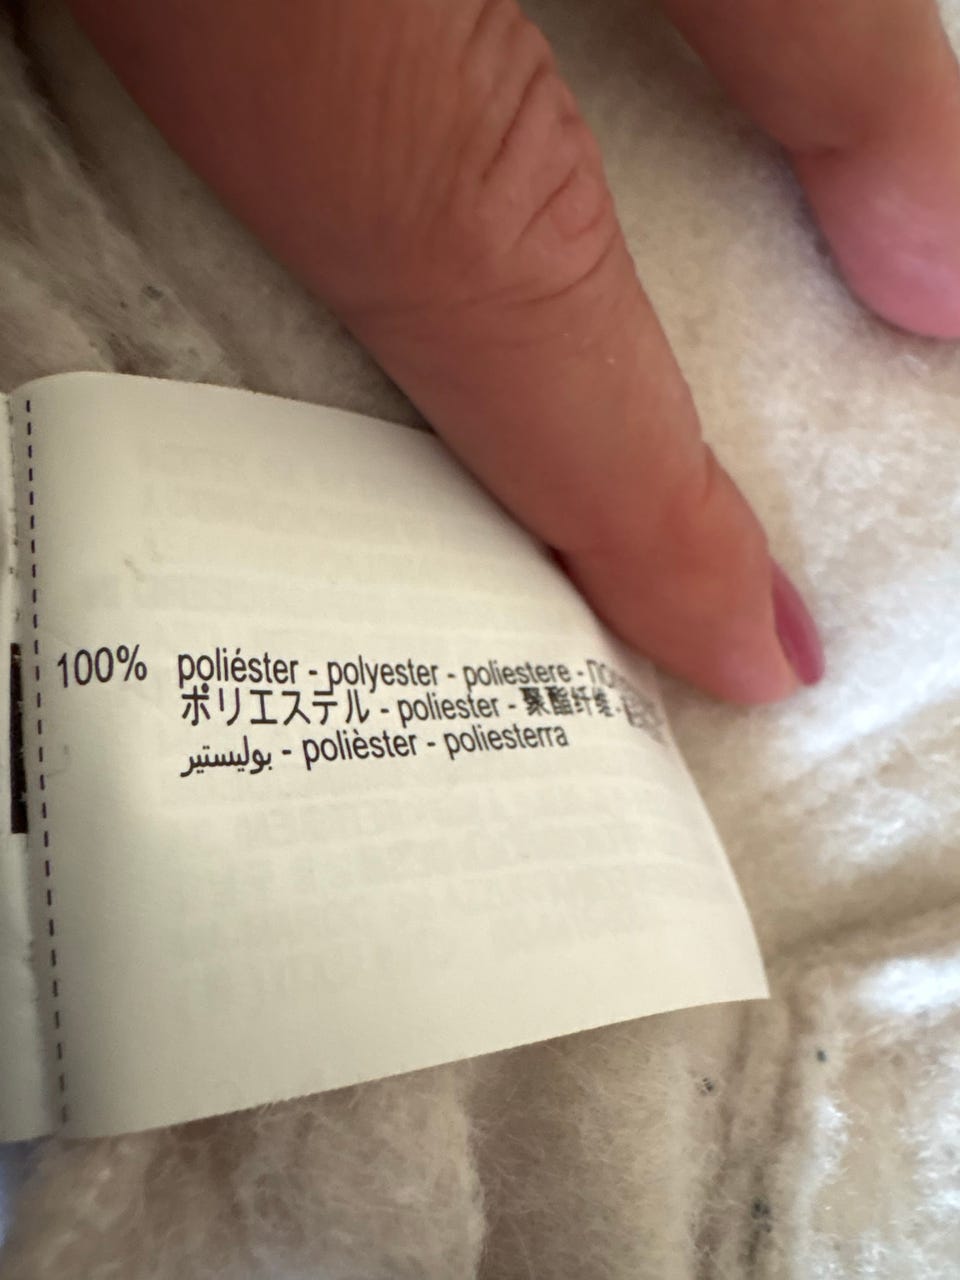 100% poliéster - polyester - poliestere -
ポリエステル - poliester - 聚酯纤维 -
بوليستير - polièster - poliesterra